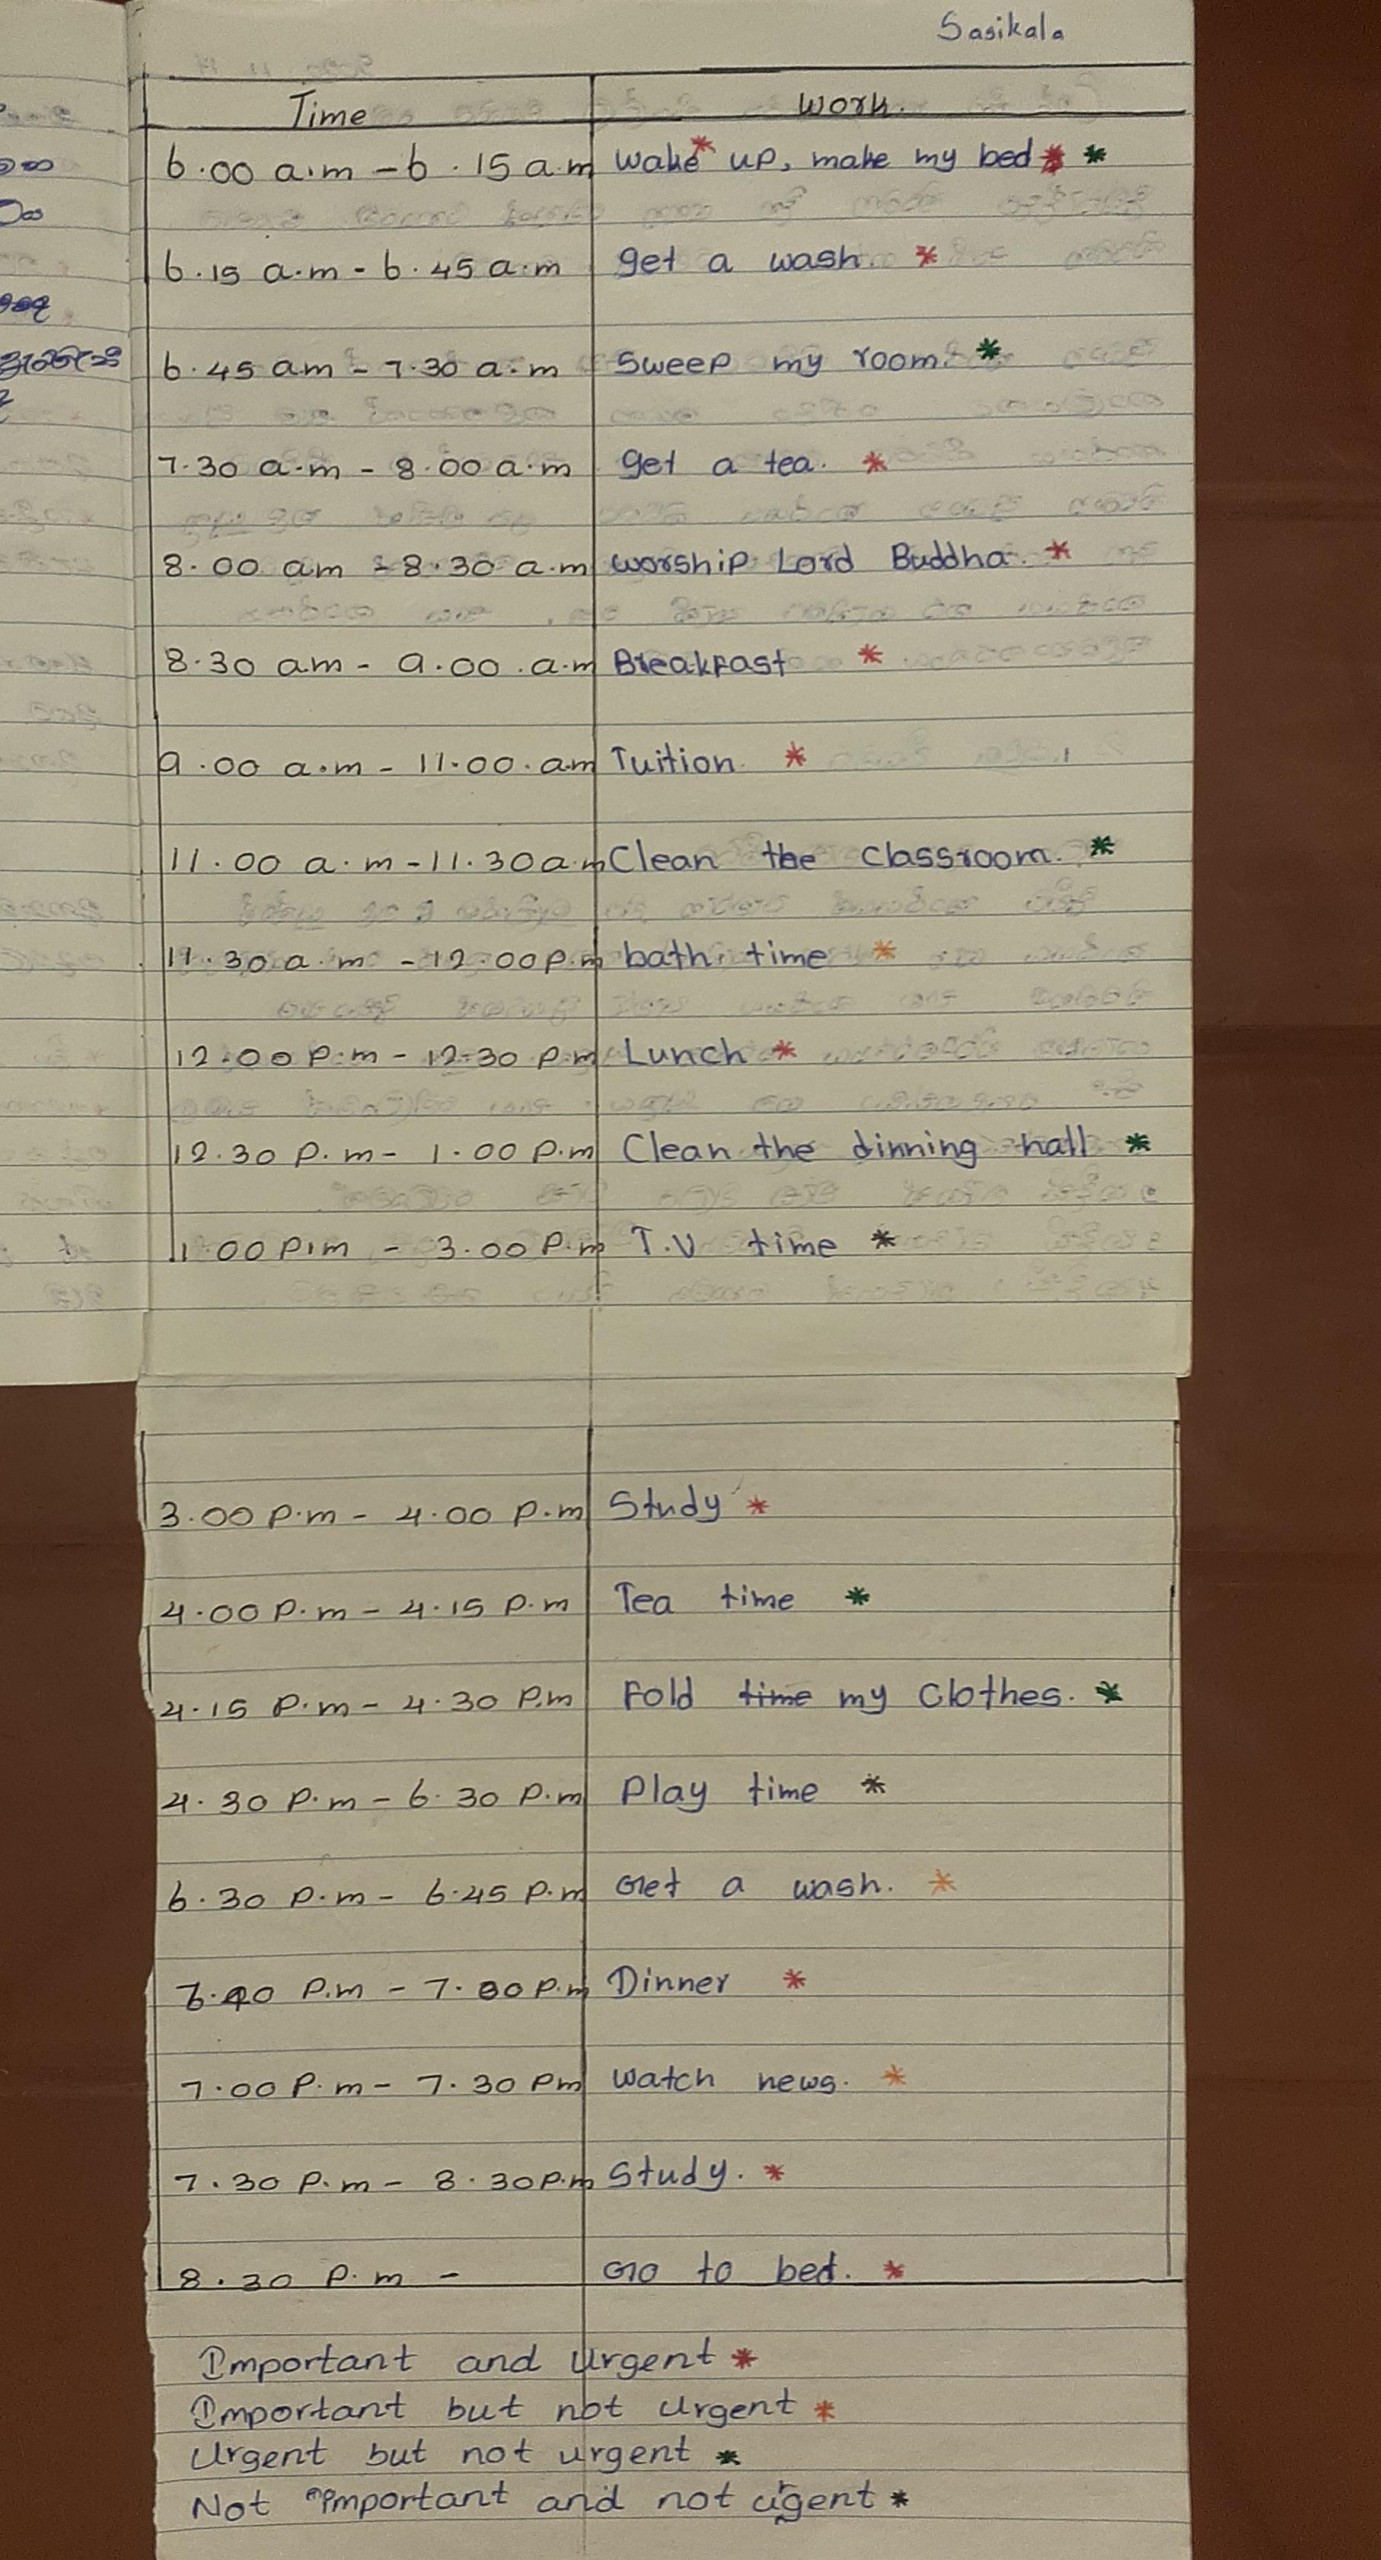 Sasikala
Time Work.
6.00 a.m - 6.15 a.m Wake* up, make my bed * *
6.15 a.m - 6.45 a.m get a wash *
6.45 am - 7.30 a.m Sweep my room. *
7.30 a.m - 8.00 a.m get a tea. *
8.00 am - 8.30 a.m worship Lord Buddha. *
8.30 am - 9.00.a.m Breakfast *
9.00 a.m - 11.00.am Tuition *
11.00 a.m - 11.30 a.m Clean the Classroom. *
11.30 a.m - 12.00 p.m bath time *
12.00 p.m - 12.30 p.m Lunch *
12.30 P.m - 1.00 P.m Clean the dinning hall *
1.00 P.m - 3.00 P.m T.V time *
3.00 P.m - 4.00 P.m Study *
4.00 P.m - 4.15 P.m Tea time *
4.15 P.m - 4.30 P.m Fold time my Clothes. *
4.30 P.m - 6.30 P.m Play time *
6.30 P.m - 6.45 P.m Get a wash. *
P.m - 7.00 P.m Dinner *
7.00 P.m - 7.30 Pm Watch news. *
7.30 P.m - 8.30 P.m Study. *
8.30 P.m - Go to bed. *
Important and Urgent *
Important but not Urgent *
Urgent but not urgent *
Not Important and not urgent *